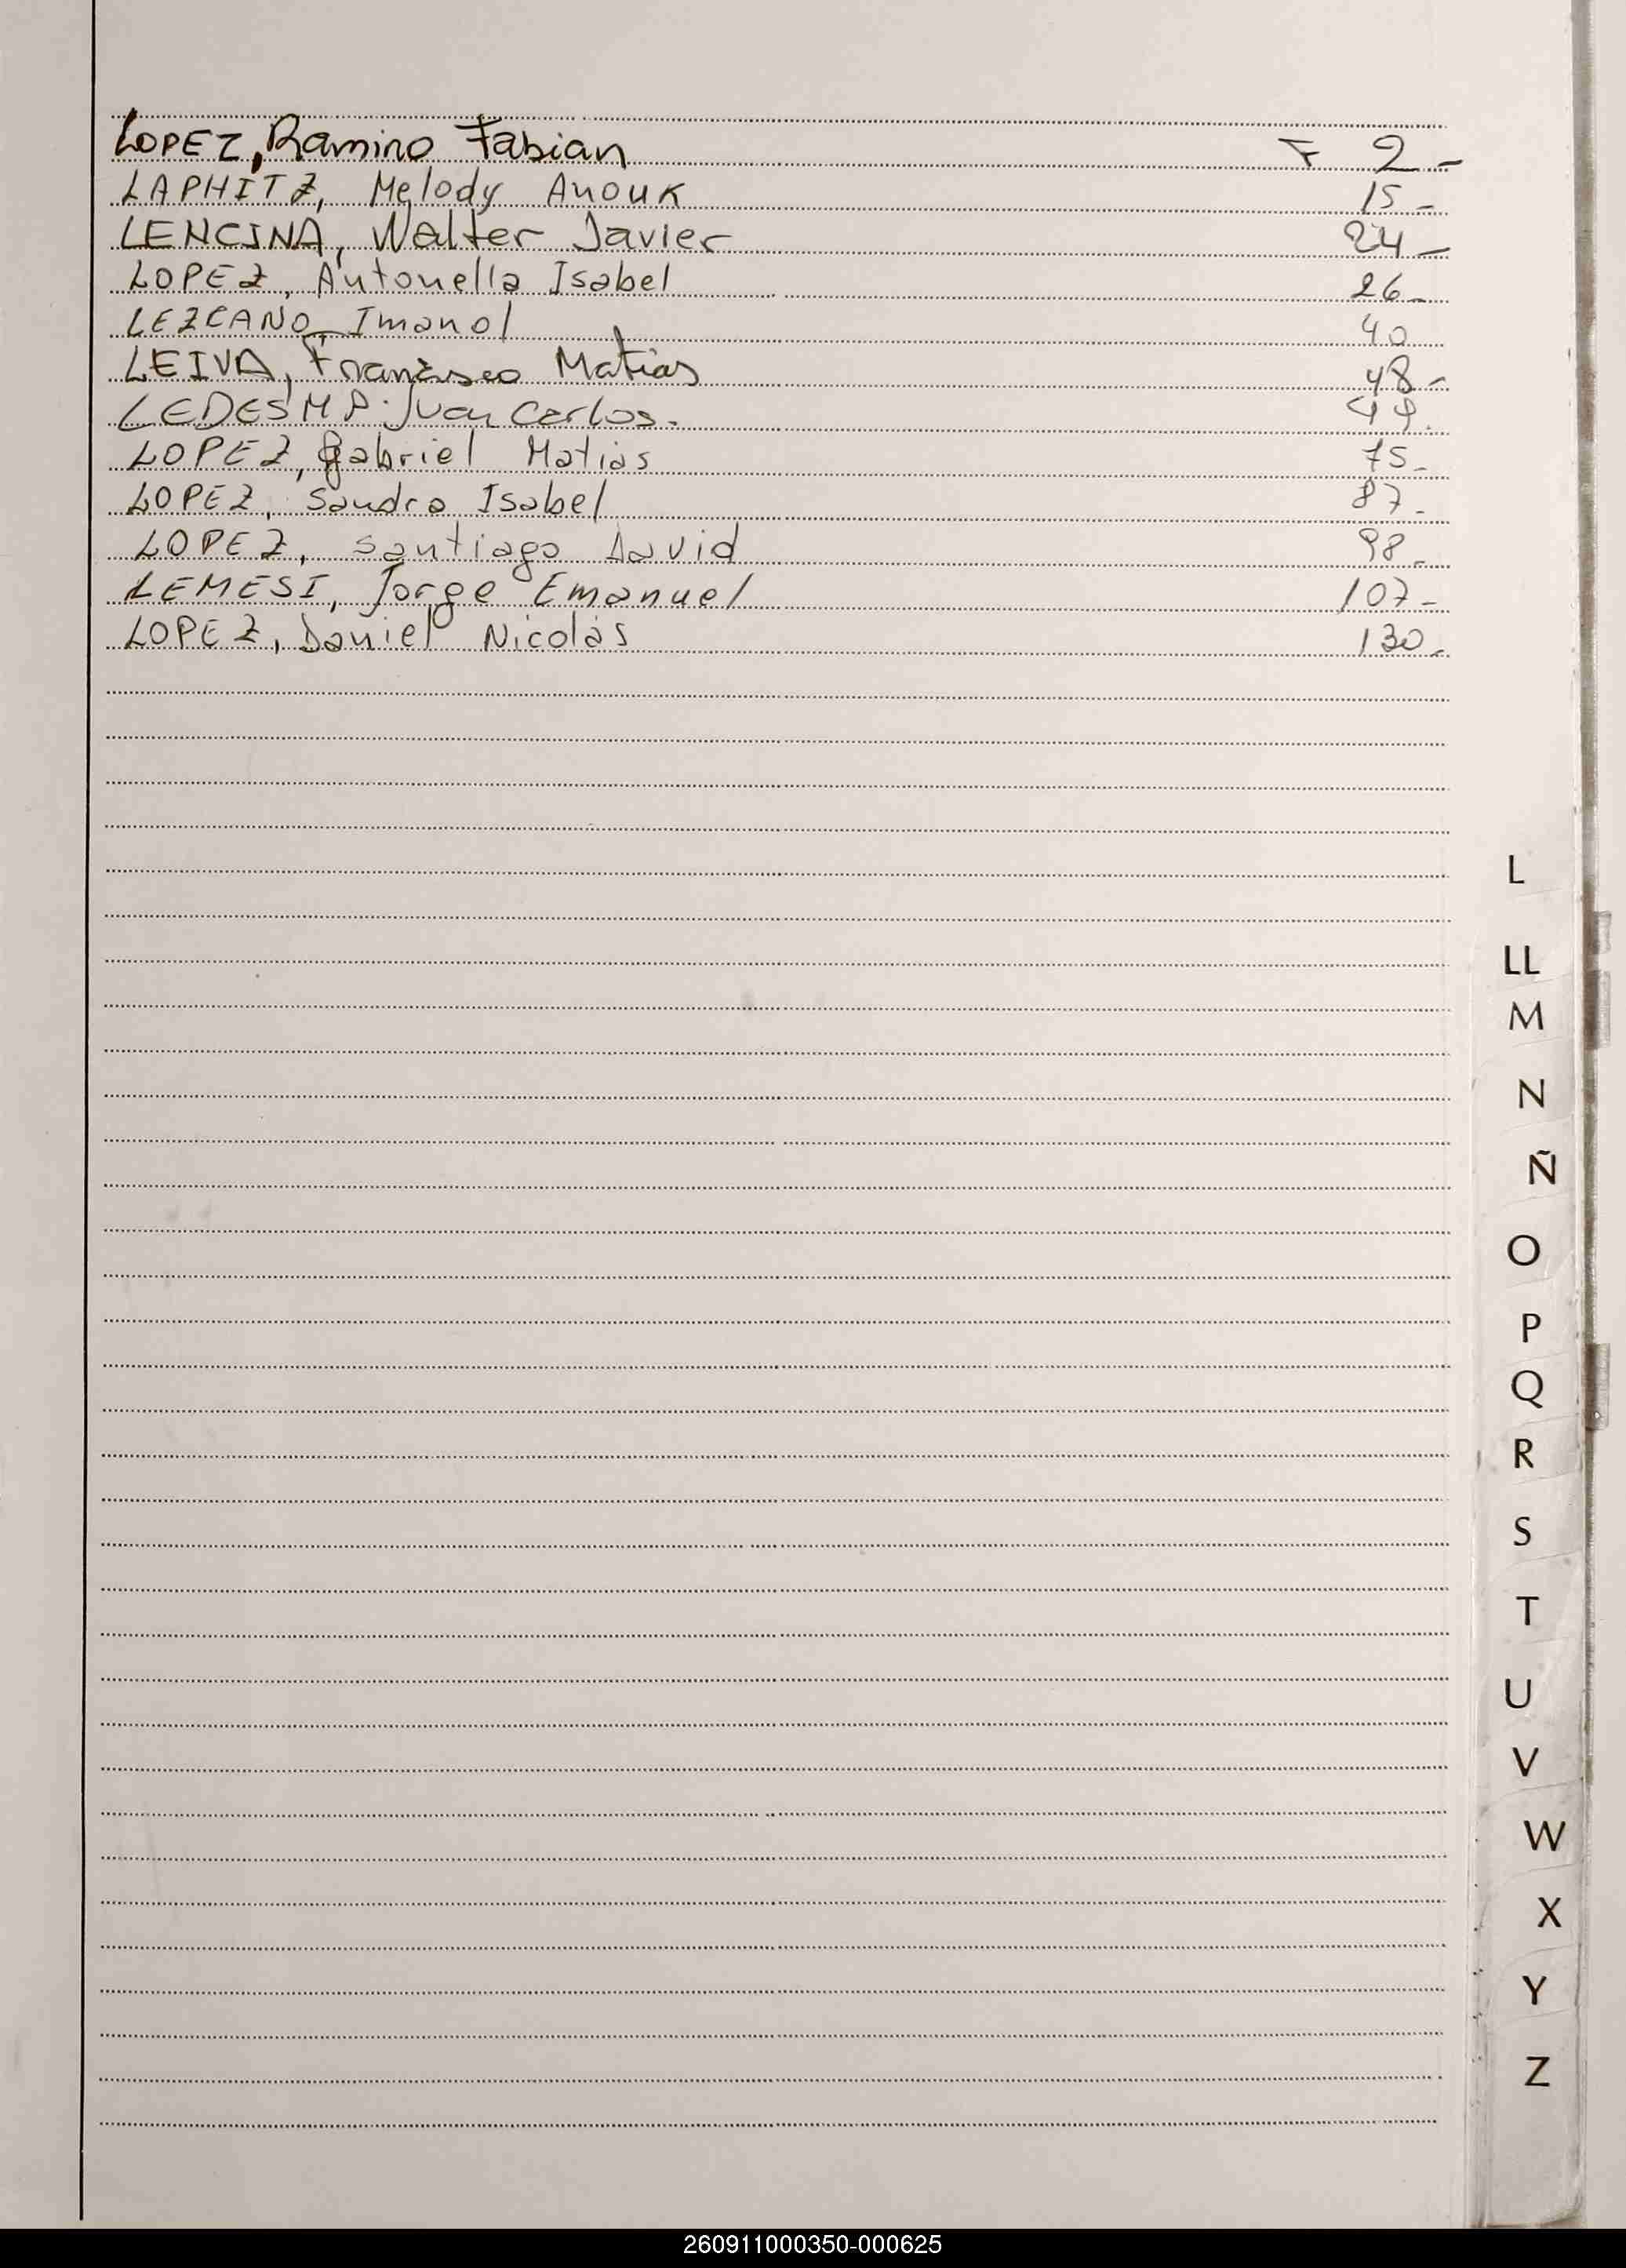 LOPEZ, Ramiro Fabian F 2-
LAPHITZ, Melody Anouk 15-
LENCINA, Walter Javier 24-
LOPEZ, Antonella Isabel 26-
LEZCANO, Imanol 40
LEIVA, Francisco Matias 48-
LEDESMA Juan Carlos.
LOPEZ, Gabriel Matias 75-
LOPEZ, Sandra Isabel 87-
LOPEZ, Santiago David 98-
LEMESI, Jorge Emanuel 107-
LOPEZ, Daniel Nicolás 130-
L
LL
M
N
Ñ
O
P
Q
R
S
T
U
V
W
X
Y
Z
260911000350-000625